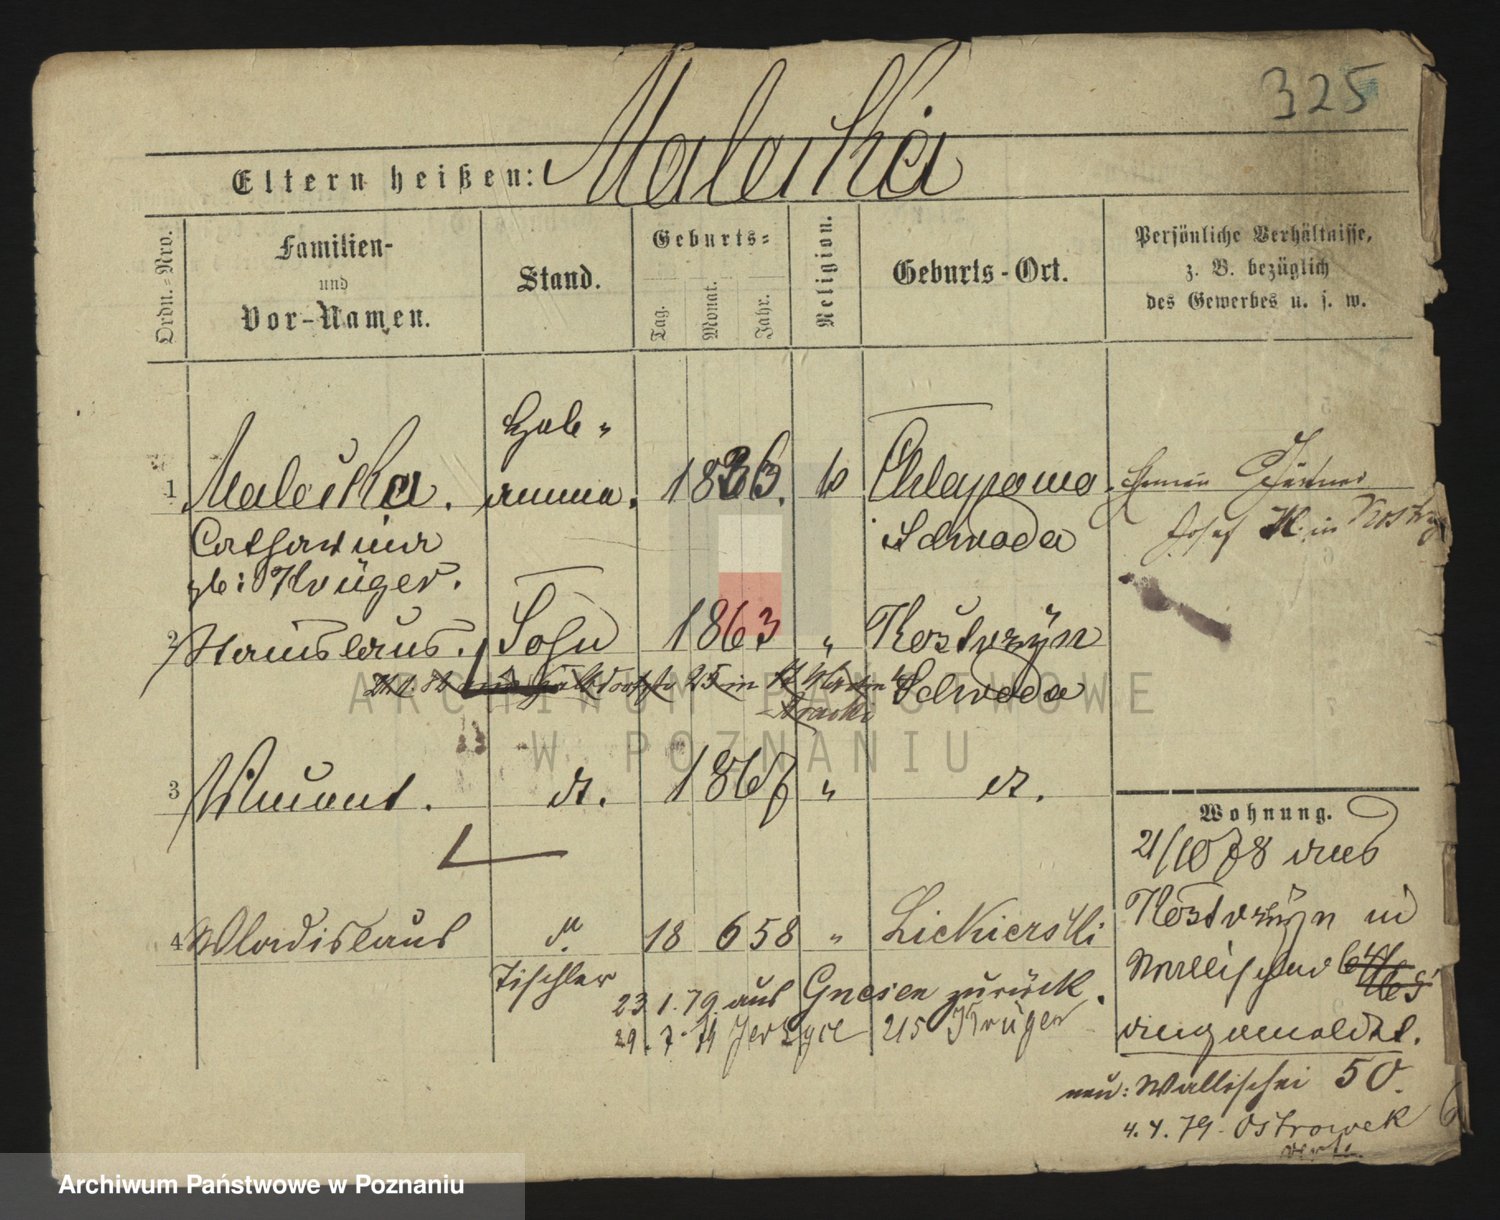 325
Eltern heißen: Maleika
Ordn.-Nro.
Familien-
und
Vor-Namen.
Stand.
Geburts-
Tag.
Monat.
Jahr.
Religion.
Geburts-Ort.
Persönliche Verhältnisse,
z. B. bezüglich
des Gewerbes u. s. w.
Heb-
1 Maleika. amme. 1836. k Chlapowo
Catharina Schroda
gb: Krüger.
Josef in Kostrzyn
2 Stanislaus. Sohn 1863 " Kostrzyn
Schroda
3 Vincent. dt. 1867 " dt.
4 Wladislaus dt. 18 6 58 "
Tischler
23 1. 79. aus Gnesen zurück.
29. 7. 79 Jerzyce 215 Krüger
Wohnung.
21/10 78 aus
Kostrzyn in
Wallischei
angemeldet.
neu: Wallischei 50.
4. 4. 79. Ostrowek
ARCHIWUM PAŃSTWOWE
W POZNANIU
Archiwum Państwowe w Poznaniu